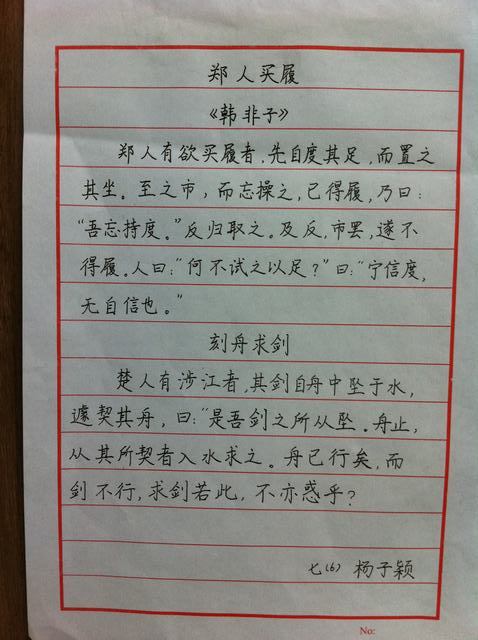 郑人买履
《韩非子》
郑人有欲买履者,先自度其足,而置之
其坐。至之市,而忘操之,已得履,乃曰:
“吾忘持度。”反归取之。及反,市罢,遂不
得履。人曰:“何不试之以足?”曰:“宁信度,
无自信也。”
刻舟求剑
楚人有涉江者,其剑自舟中坠于水,
遽契其舟,曰:“是吾剑之所从坠。舟止,
从其所契者入水求之。舟已行矣,而
剑不行,求剑若此,不亦惑乎?
七(6) 杨子颖
No: